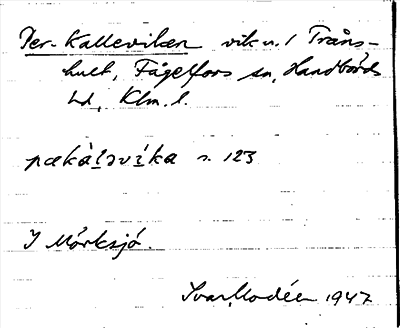 Per-Kalleviken vik u. / Tråns-
hult, Fågelfors sn, Handbörds
hd, Klm. l.
pækàlɔvíka s. 123
I Mörksjö.
Ivar Modéer 1947